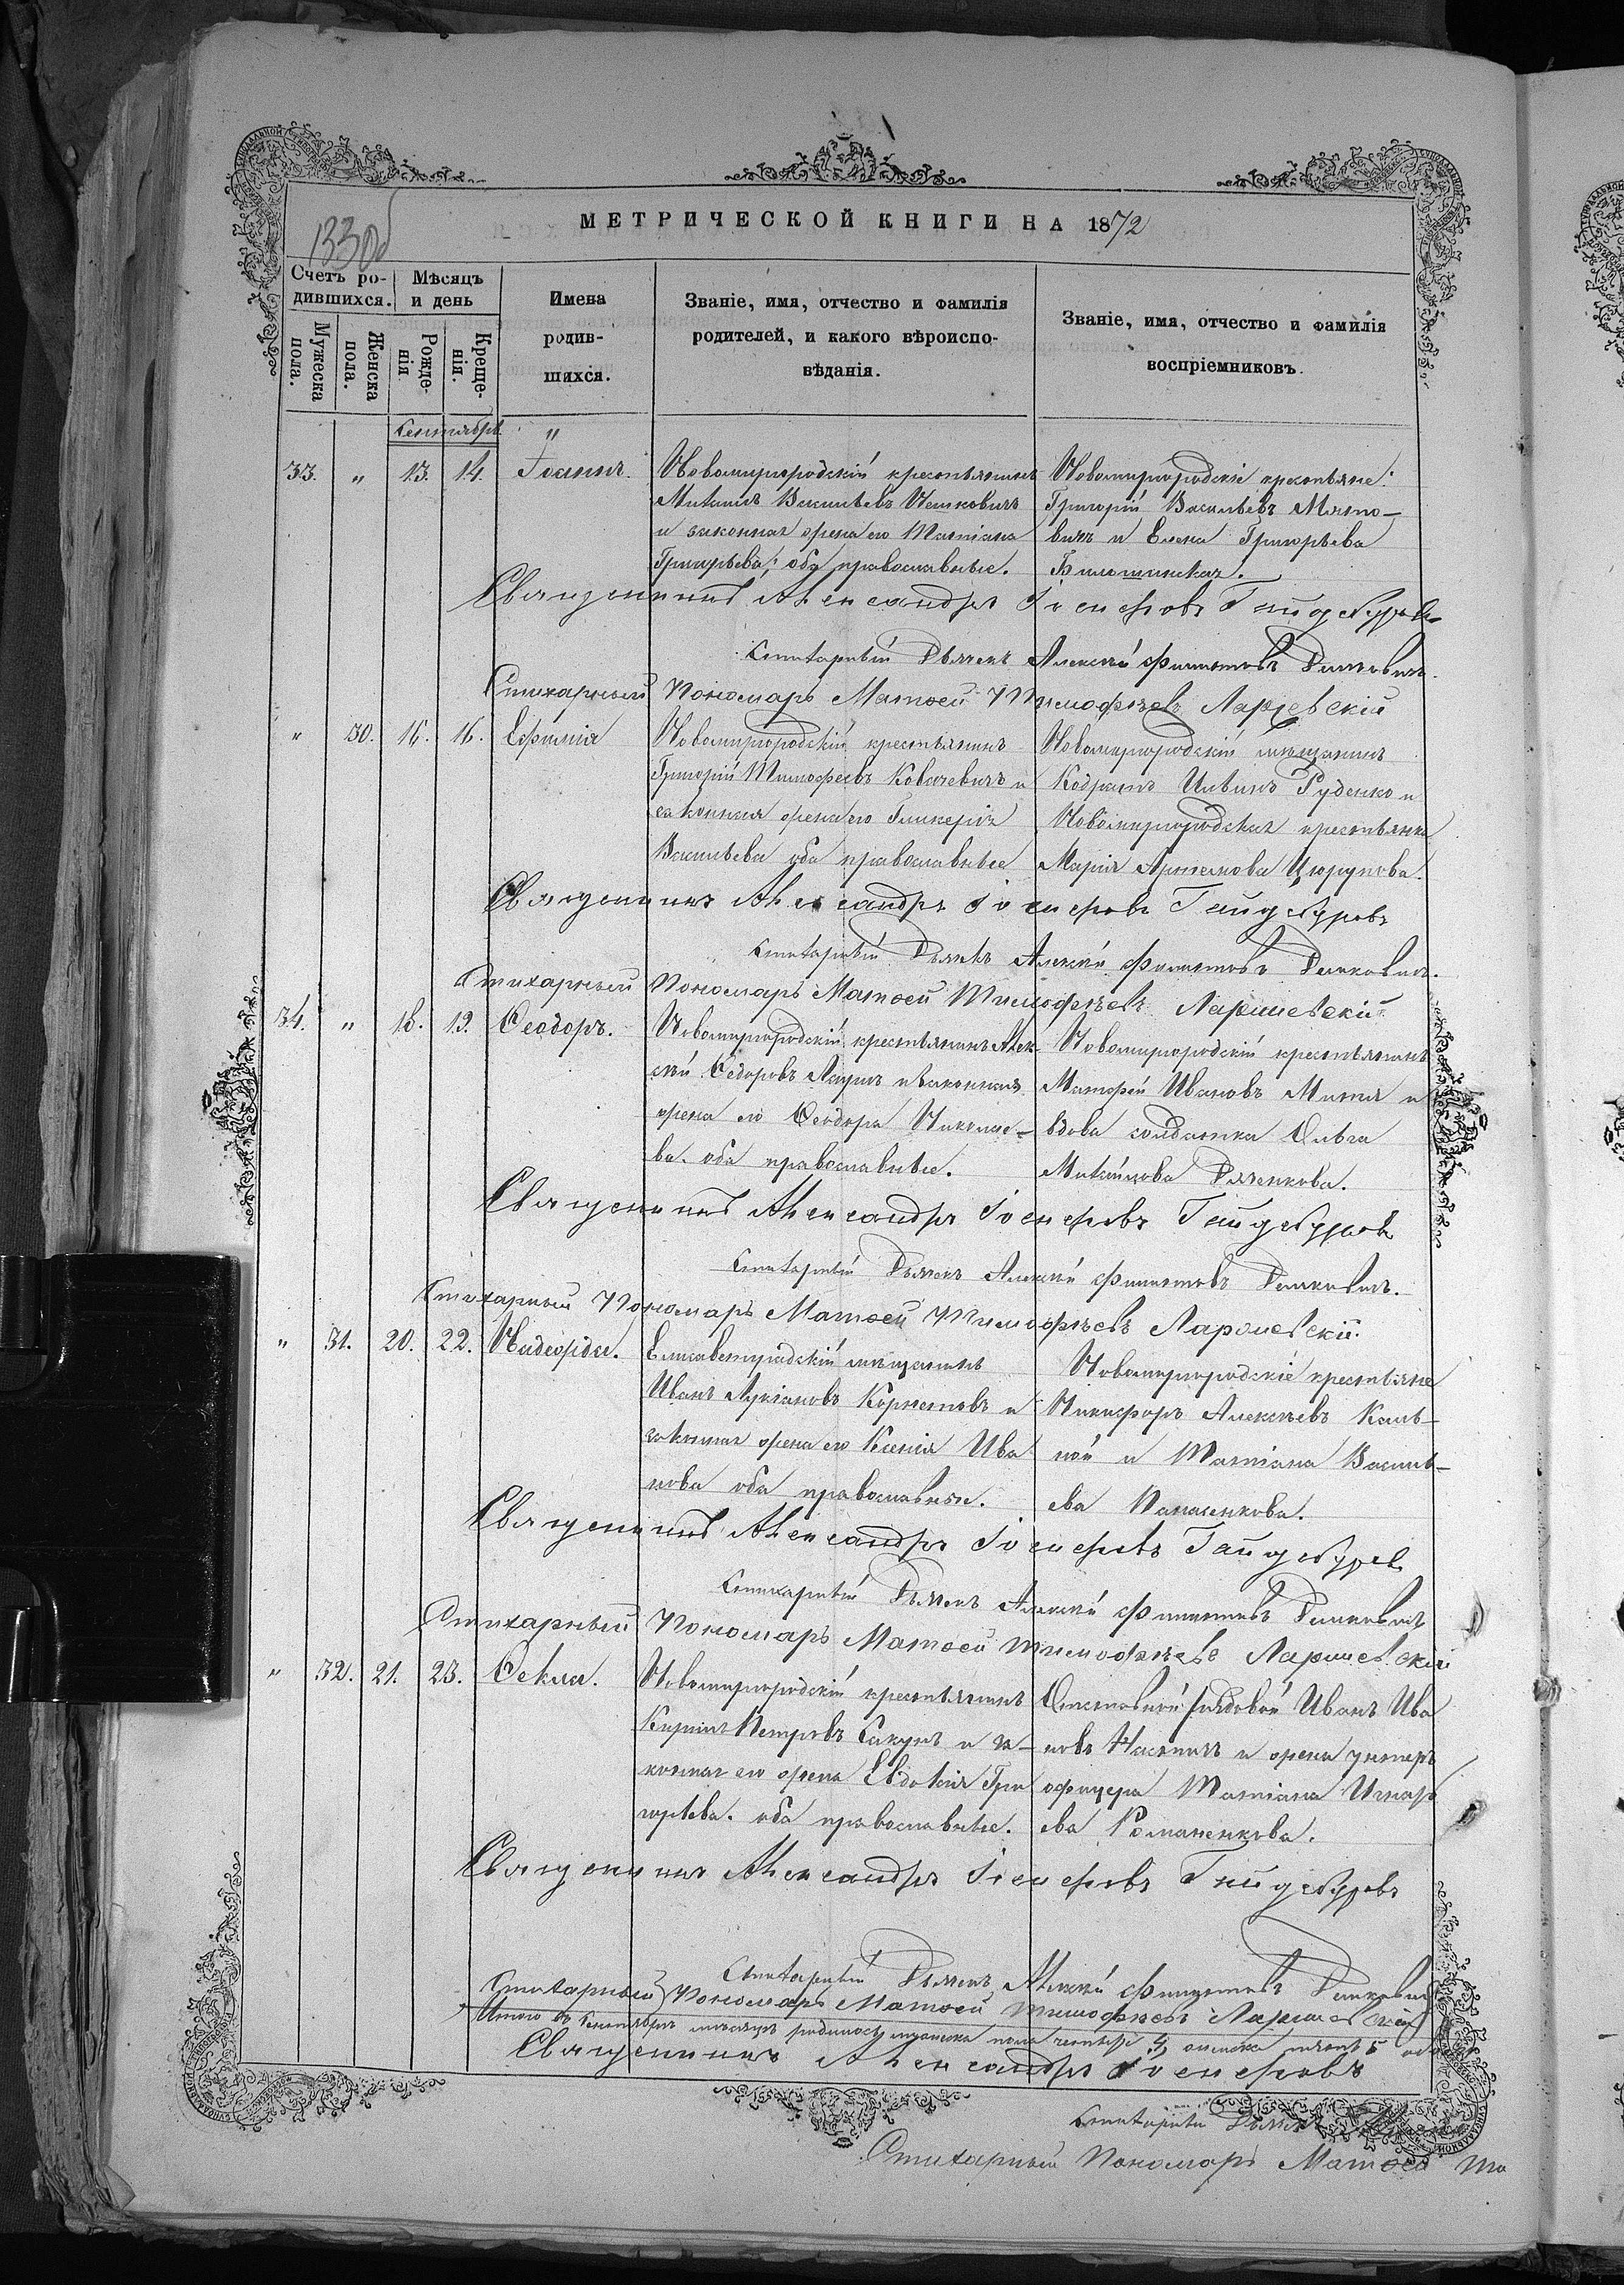 133об
МЕТРИЧЕСКОЙ КНИГИ НА 1872
Счетъ ро-
дившихся.
Мѣсяцъ
и день
Мужеска
пола.
Женска
пола.
Рожде-
нія
Креще-
нія.
Имена
родив-
шихся.
Званіе, имя, отчество и фамилія
родителей, и какого вѣроиспо-
вѣданія.
Званіе, имя, отчество и фамилія
воспріемниковъ.
Сентябрь "
33. " 13. 14. Іоаннъ.
Новомиргородскій крестьянинъ
Михаилъ Васильевъ
и законная жена его Татіана
Григорьева; оба православные.
Новомиргородскіе крестьяне:
Григорій Васильевъ
и Елена Григорьева
Священникъ Александръ Іосифовъ Гайдебуровъ
Стихарный Дьячекъ Алексѣй Филиповъ
Стихарный Пономарь Матѳей Тимофѣевъ
" 30. 15. 16. Ефимія
Новомиргородскій крестьянинъ
Григорій Тимофеевъ Ковачевичъ и
законная жена его Гликерія
Васильева оба православные
Новомиргородскій мѣщанинъ
Кодратъ Руденко и
Новомиргородская крестьянка
Марія Артемова Цюрупова.
Священникъ Александръ Іосифовъ Гайдебуровъ
Стихарный Дьячекъ Алексѣй Филиповъ
Стихарный Пономарь Матѳей Тимофѣевъ
34. " 18. 19. Ѳеодоръ.
Новомиргородскій крестьянинъ Алек-
сѣй Ѳедоровъ и законная
жена его Ѳеодора Николае-
ва. оба православные.
Новомиргородскій крестьянинъ
Матфей Ивановъ и
вдова солдатка Ольга
Михайлова Дяченкова.
Священникъ Александръ Іосифовъ Гайдебуровъ
Стихарный Дьячекъ Алексѣй Филиповъ
Стихарный Пономарь Матѳей Тимофѣевъ
" 31. 20. 22. Надежда.
Елисаветградскій мѣщанинъ
Иванъ Лукіановъ и
законная жена его Ксенія Ива
нова оба православные.
Новомиргородскіе крестьяне
Никифоръ Алексѣевъ
и Татіана Василь-
ева
Священникъ Александръ Іосифовъ Гайдебуровъ
Стихарный Дьячекъ Алексѣй Филиповъ
Стихарный Пономарь Матѳей Тимофѣевъ
" 32. 21. 23. Ѳекла.
Новомиргородскій крестьянинъ
Кирилъ Петровъ Сакунъ и за-
конная его жена Евдокія Гри
горьева. оба православные.
Отставной рядовой Иванъ Ива
новъ и жена унтеръ
офицера Татіана
ева Романенкова.
Священникъ Александръ Іосифовъ Гайдебуровъ
Стихарный Дьячекъ Алексѣй Филиповъ
Стихарный Пономарь Матѳей Тимофѣевъ
Итого въ Сентябрѣ мѣсяцѣ родилось мужеска пола четыре 4, женска пять 5
Священникъ Александръ Іосифовъ
Стихарный Дьячекъ
Стихарный Пономарь Матѳей